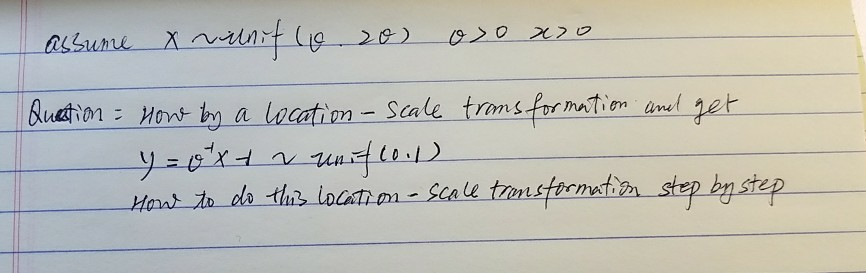 assume x ~ unif (θ. 2θ) θ>0 x>0
Question = How by a location - scale transformation and get
y = θ⁻¹x-1 ~ unif (0.1)
How to do this location - scale transformation step by step